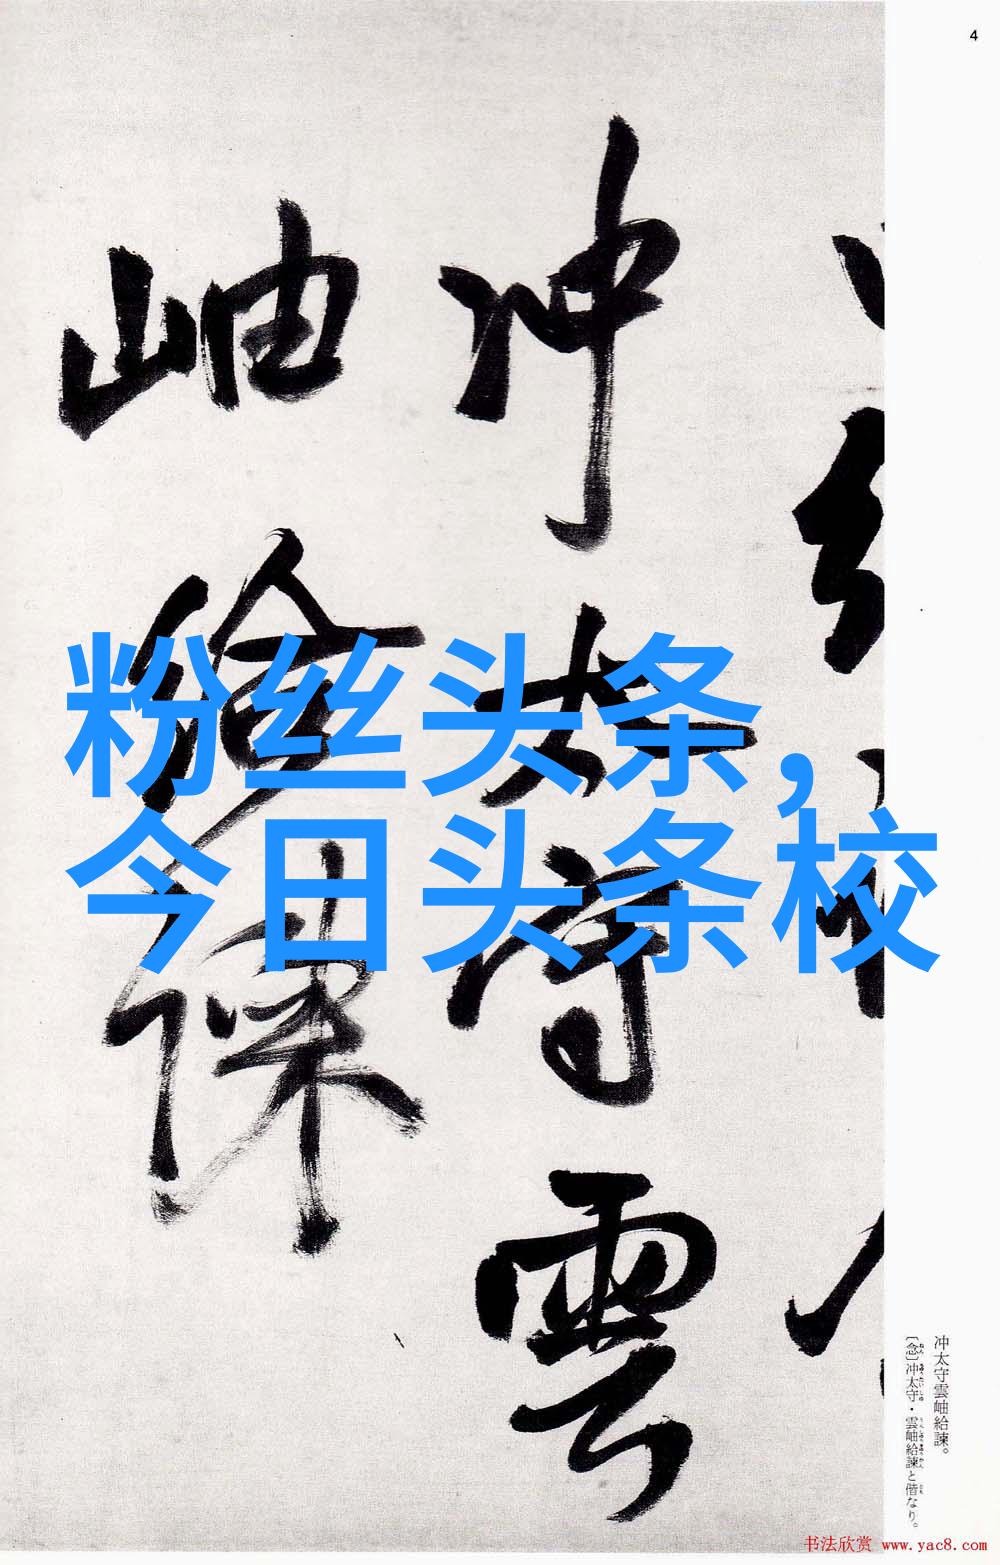 4
冲太守雲
岫給諫
粉丝头条,
今日头条校
冲太守雲岫給諫。
〔念〕冲太守・雲岫給諫と偕なり。
书法欣赏 www.yac8.com